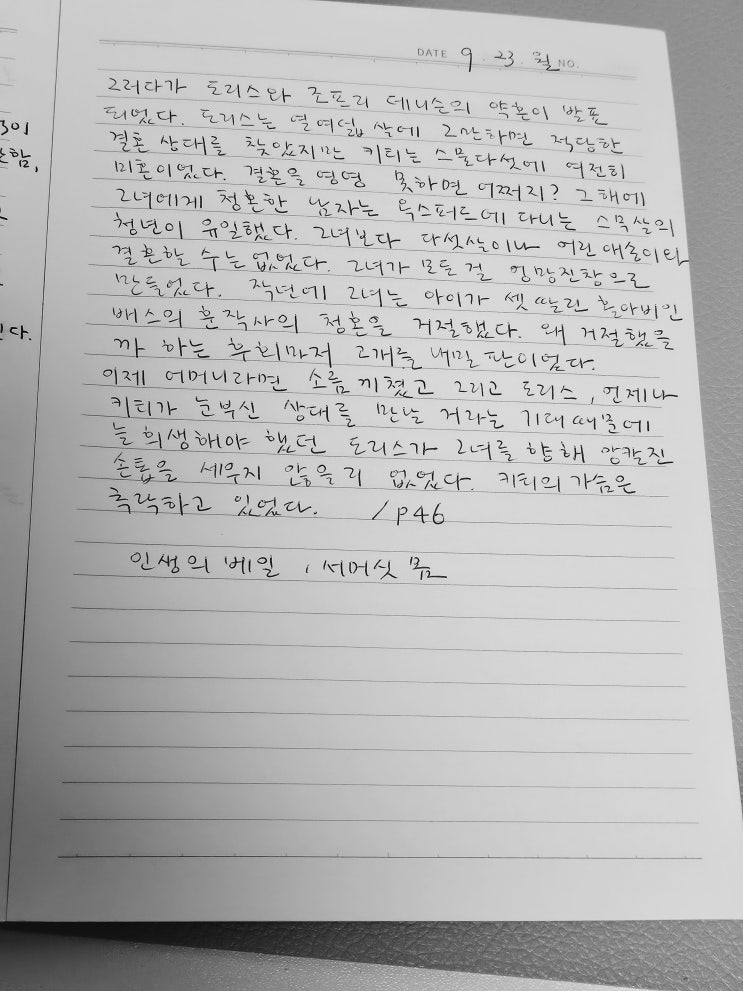 DATE 9 . 23 . 월 NO.
그러다가 도리스와 조프리 데니슨의 약혼이 발표
되었다. 도리스는 열여덟 살에 그만하면 적당한
결혼 상대를 찾았지만 키티는 스물다섯에 여전히
미혼이었다. 결혼을 영영 못하면 어쩌지? 그 해에
그녀에게 청혼한 남자는 옥스퍼드에 다니는 스무살의
청년이 유일했다. 그녀보다 다섯살이나 어린 애송이와
결혼할 수는 없었다. 그녀가 모든 걸 엉망진창으로
만들었다. 작년에 그녀는 아이가 셋 딸린 홀아비인
배스의 훈작사의 청혼을 거절했다. 왜 거절했을
까 하는 후회마저 고개를 내밀 판이었다.
이제 어머니라면 소름 끼쳤고 그리고 도리스, 언제나
키티가 눈부신 상대를 만날 거라는 기대 때문에
늘 희생해야 했던 도리스가 그녀를 향해 앙칼진
손톱을 세우지 않을 리 없었다. 키티의 가슴은
축락하고 있었다. /p46
인생의 베일, 서머싯 몸
301
함,
다.